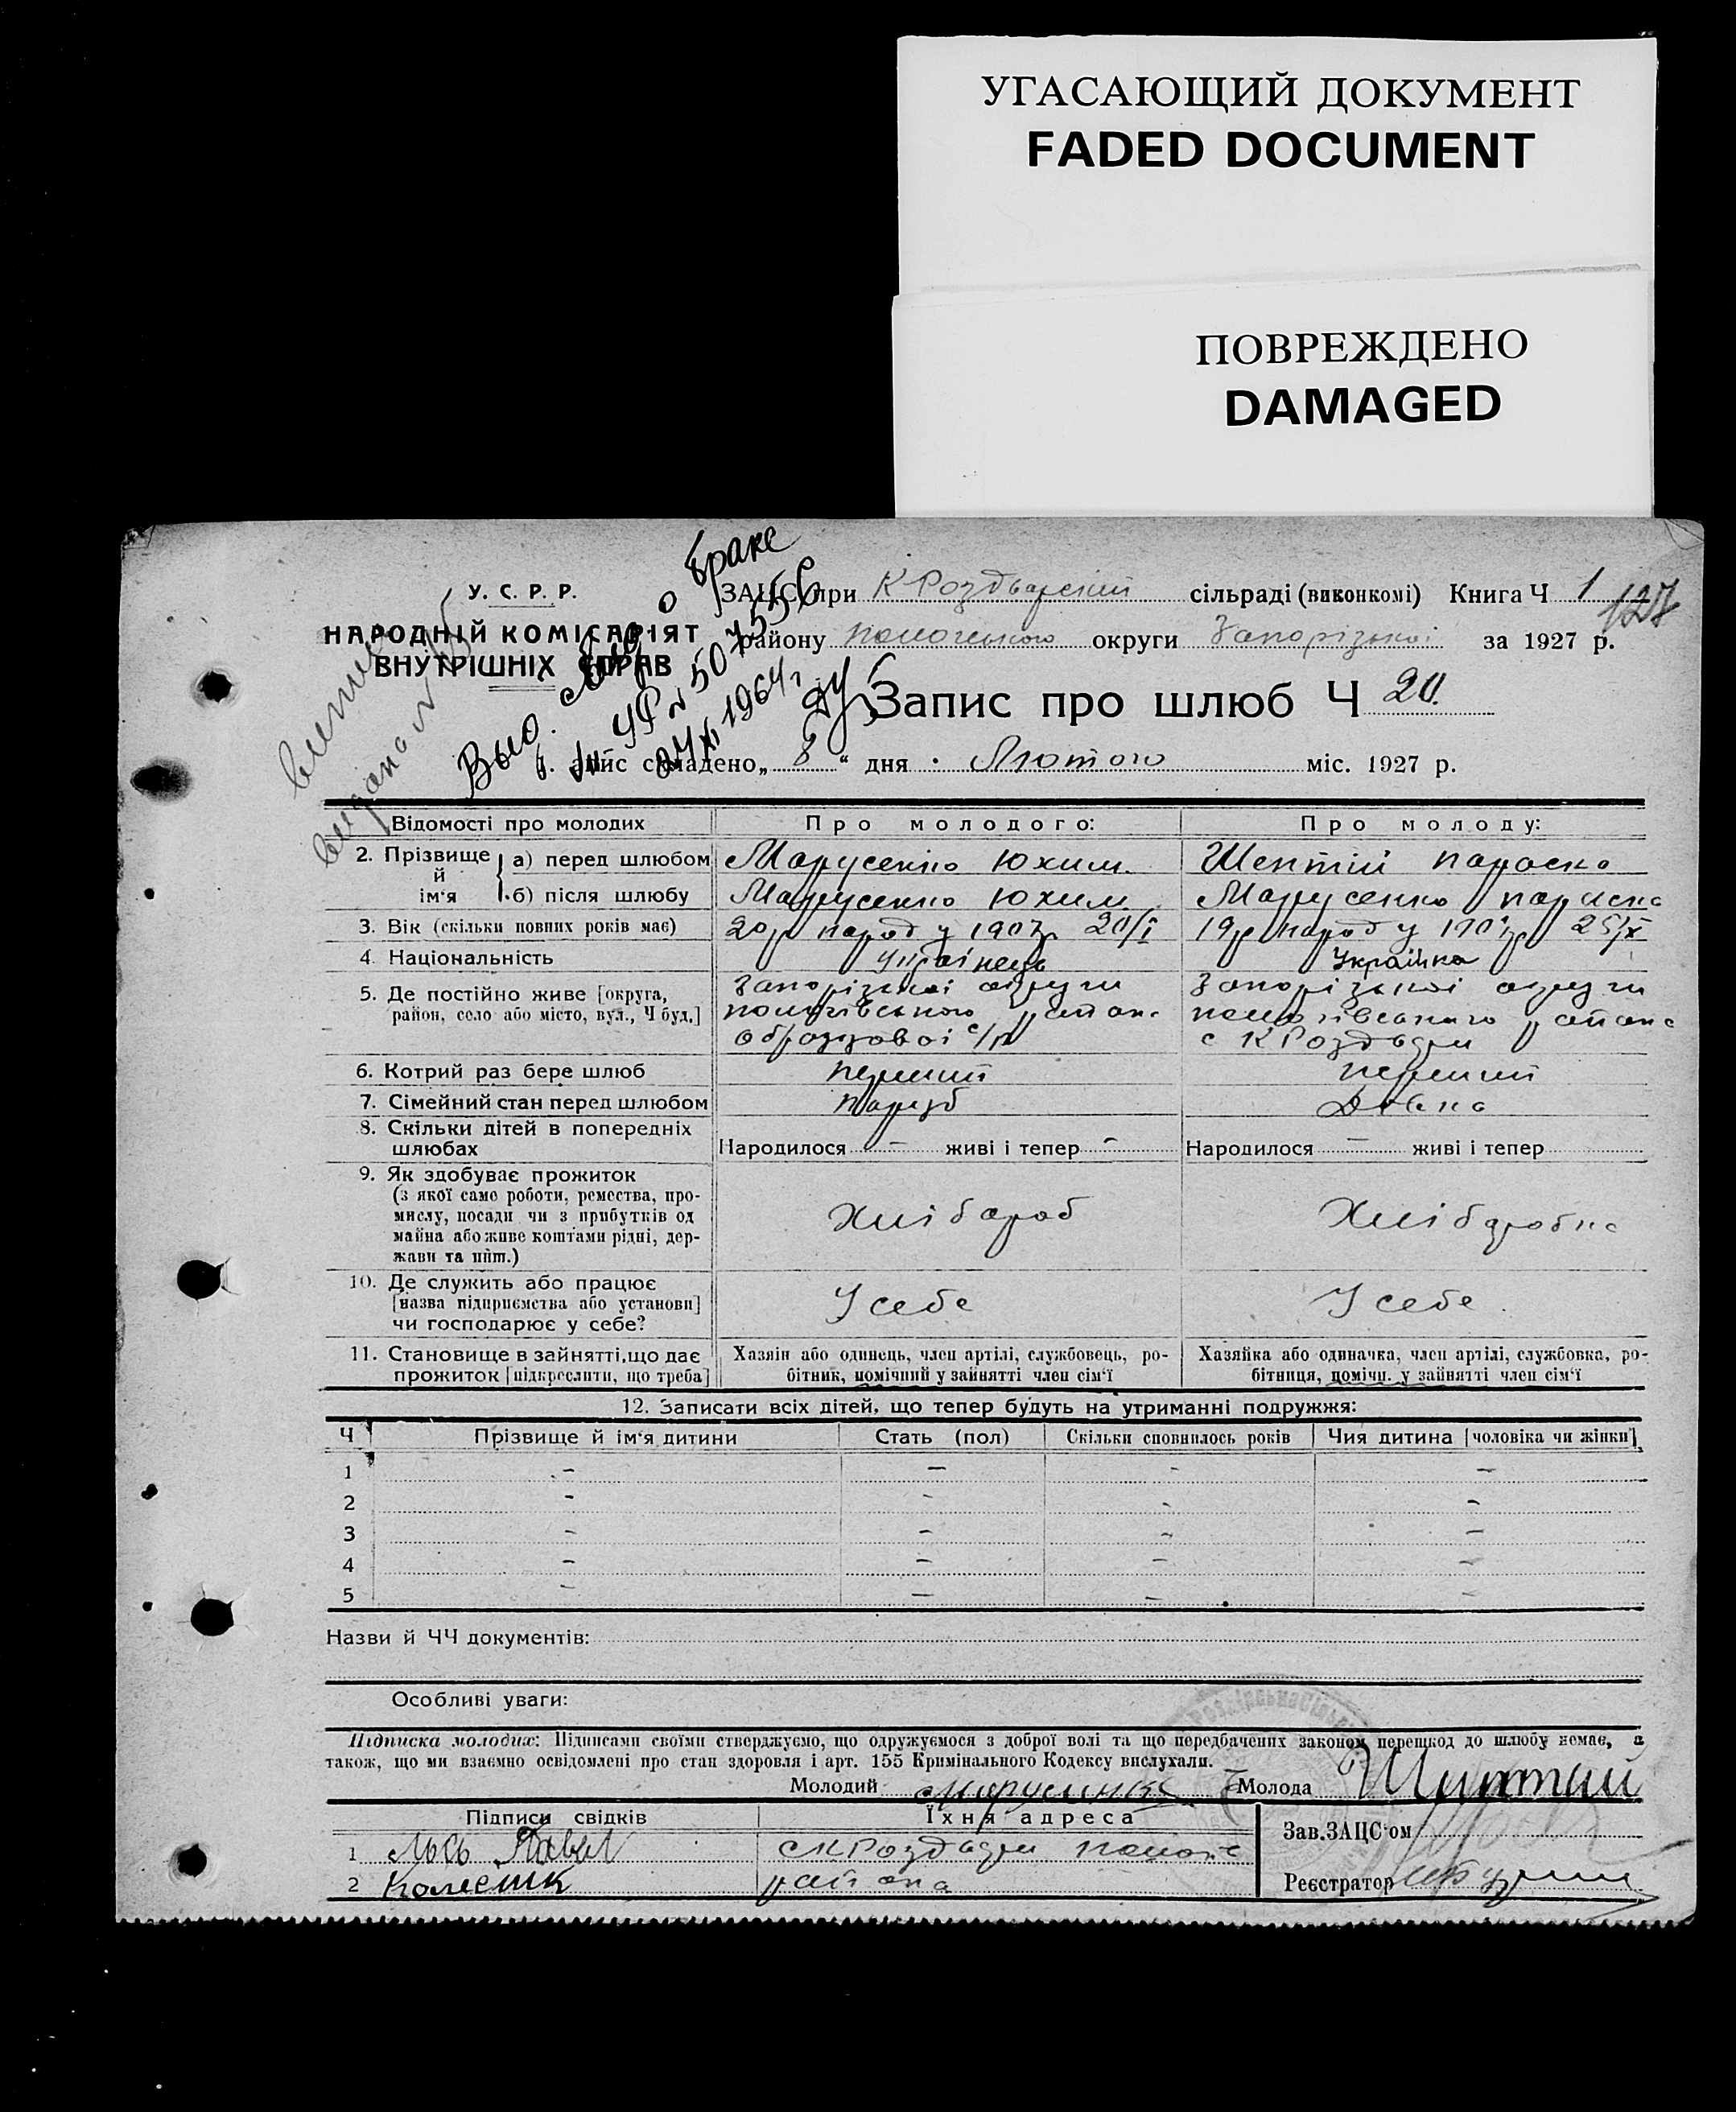 УГАСАЮЩИЙ ДОКУМЕНТ
FADED DOCUMENT
ПОВРЕЖДЕНО
DAMAGED
У. С. Р. Р.
НАРОДНІЙ КОМІСАРІЯТ
ВНУТРІШНІХ СПРАВ
Выд. о браке
УФ № 507556
24/XI 1964 г.
ЗАЦС при К Роздорский сільраді (виконкомі) Книга Ч 1
127
району округи Запорізької за 1927 р.
Запис про шлюб Ч 20.
складено „ 8 “ дня Лютого міс. 1927 р.
Відомості про молодих
Про молодого:
Про молоду:
2. Прізвище й ім'я
а) перед шлюбом Марусенко Юхим Шептій Параска
б) після шлюбу Марусенко Юхим Марусенко Параска
3. Вік (скільки повних років має) 20 р народ у 1907 р 20/I 19 р народ у 25/X
4. Національність Українець Українка
5. Де постійно живе [округа, район, село або місто, вул., Ч буд.]
Запорізької округи
пологівського району
с/р
Запорізької округи
пологівського району
с К Роздори
6. Котрий раз бере шлюб перший перший
7. Сімейний стан перед шлюбом паруб Дівка
8. Скільки дітей в попередніх шлюбах
Народилося – живі і тепер –
Народилося – живі і тепер
9. Як здобуває прожиток
(з якої саме роботи, ремества, про-
мислу, посади чи з прибутків од
майна або живе коштами рідні, дер-
жави та инш.)
Хлібароб
Хлібаробка
10. Де служить або працює
[назва підприємства або установи]
чи господарює у себе?
У себе
У себе
11. Становище в зайнятті, що дає
прожиток [підкреслити, що треба]
Хазяїн або одинець, член артілі, службовець, ро-
бітник, помічний у зайнятті член сім'ї
Хазяйка або одиначка, член артілі, службовка, ро-
бітниця, помічн. у зайнятті член сім'ї
12. Записати всіх дітей, що тепер будуть на утриманні подружжя:
Ч Прізвище й ім'я дитини Стать (пол) Скільки сповнилось років Чия дитина [чоловіка чи жінки]
1 – – – –
2 – – – –
3 – – – –
4 – – – –
5 – – – –
Назви й ЧЧ документів:
Особливі уваги:
Підписка молодих: Підписами своїми стверджуємо, що одружуємося з доброї волі та що передбачених законом перешкод до шлюбу немає, а
також, що ми взаємно освідомлені про стан здоровля і арт. 155 Кримінального Кодексу вислухали.
Молодий Молода
Підписи свідків
Їхня адреса
1 Павел с К Роздори
2 Колесник района
Зав. ЗАЦС'ом
Реєстратор